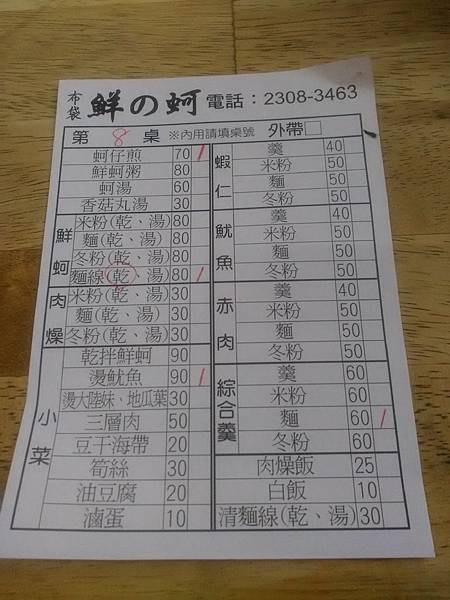 布袋 鮮の蚵 電話：2308-3463
第 8 桌 ※內用請填桌號 外帶□
蚵仔煎 70 /
鮮蚵粥 80
蚵湯 60
香菇丸湯 30
鮮蚵
米粉(乾、湯) 80
麵(乾、湯) 80
冬粉(乾、湯) 80
麵線(乾、湯) 80 /
肉燥
米粉(乾、湯) 30
麵(乾、湯) 30
冬粉(乾、湯) 30
小菜
乾拌鮮蚵 90
燙魷魚 90 /
燙大陸妹、地瓜葉 30
三層肉 50
豆干海帶 20
筍絲 30
油豆腐 20
滷蛋 10
蝦仁
羹 40
米粉 50
麵 50
冬粉 50
魷魚
羹 40
米粉 50
麵 50
冬粉 50
赤肉
羹 40
米粉 50
麵 50
冬粉 50
綜合羹
羹 60
米粉 60
麵 60 /
冬粉 60
肉燥飯 25
白飯 10
清麵線(乾、湯) 30